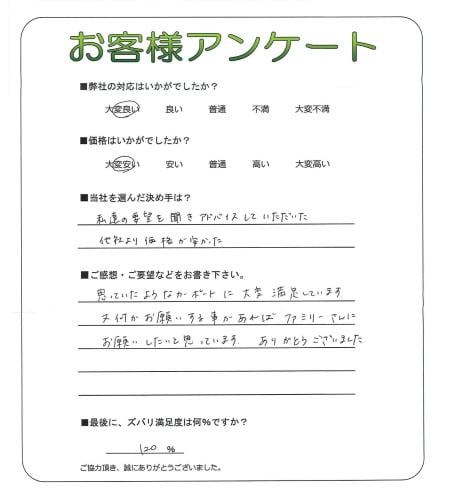 お客様アンケート
■弊社の対応はいかがでしたか？
大変良い 良い 普通 不満 大変不満
■価格はいかがでしたか？
大変安い 安い 普通 高い 大変高い
■当社を選んだ決め手は？
私達の要望を聞きアドバイスしていただいた
他社より価格が安かった
■ご感想・ご要望などをお書き下さい。
思っていたようなカーポートに大変満足しています
又何かお願いする事があればファミリーさんに
お願いしたいと思っています。ありがとうございました
■最後に、ズバリ満足度は何％ですか？
120 %
ご協力頂き、誠にありがとうございました。